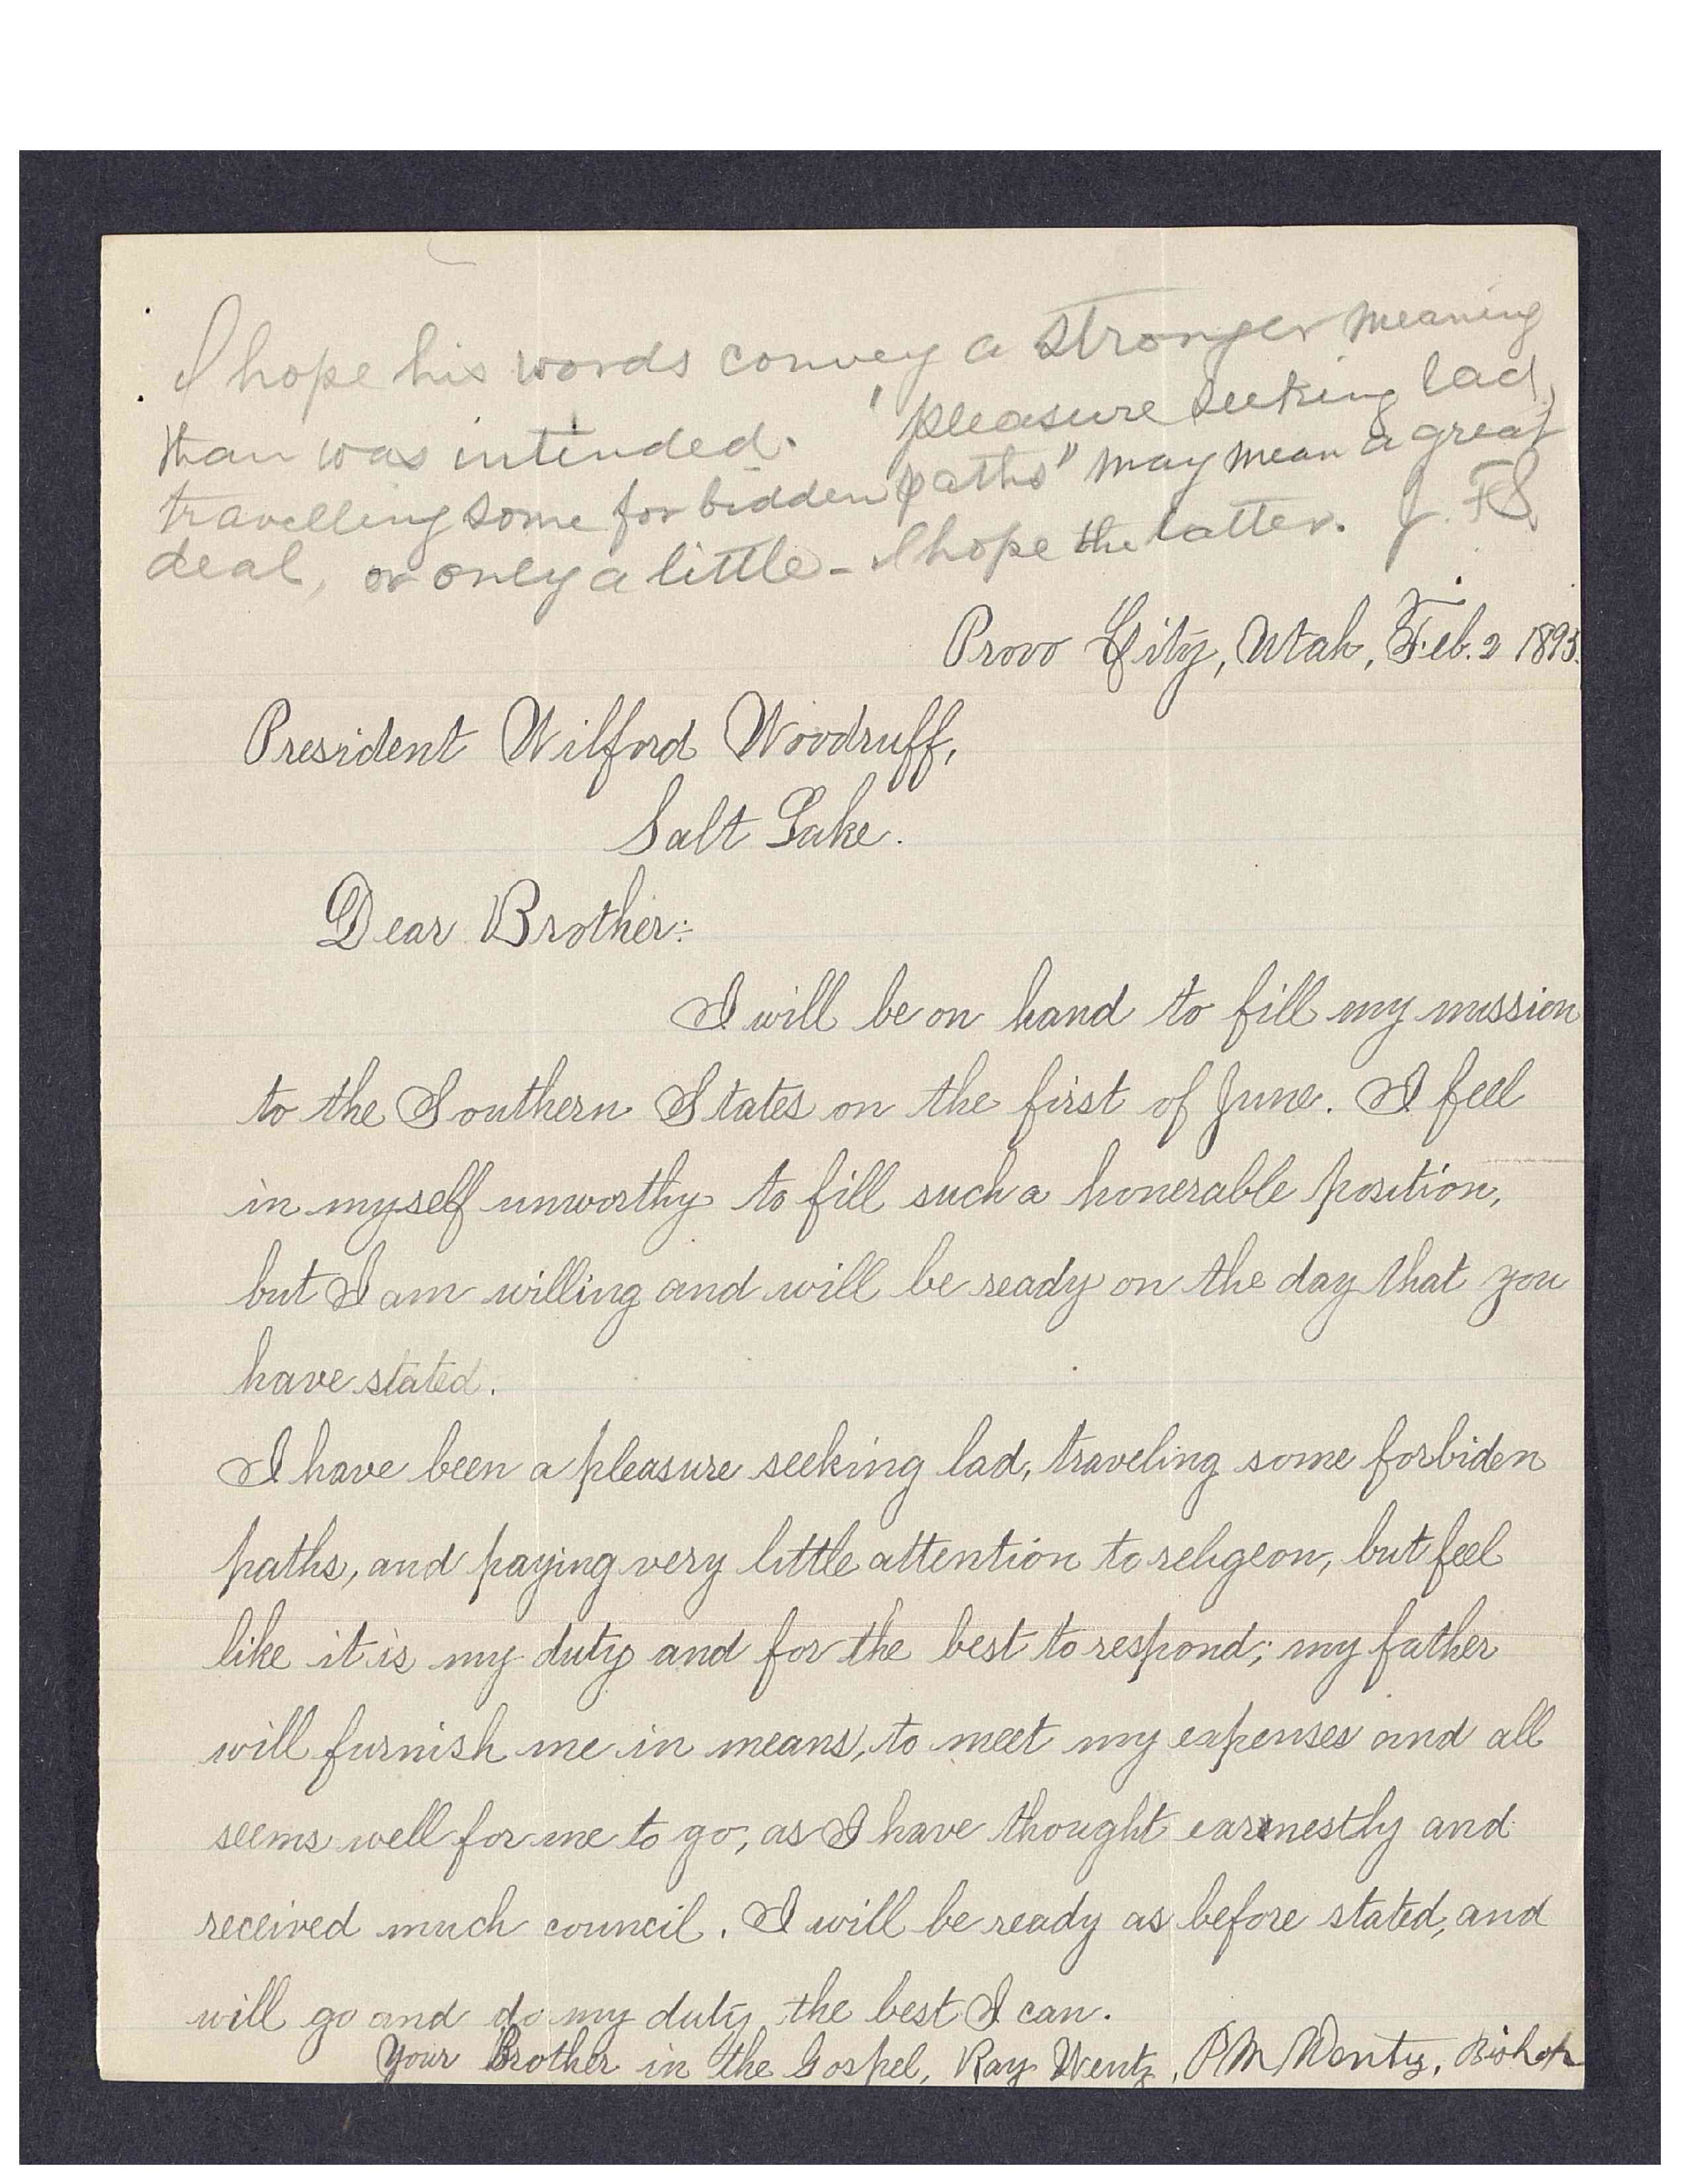 I hope his words convey a stronger meaning
than was intended. "pleasure seeking lad,
travelling some forbidden paths" may mean a great
deal, or only a little - I hope the latter. J. F. S.
Provo City, Utah, Feb. 2 1895.
President Wilford Woodruff,
Salt Lake.
Dear Brother:
I will be on hand to fill my mission
to the Southern States on the first of June. I feel
in myself unworthy to fill such a honerable position,
but I am willing and will be ready on the day that you
have stated.
I have been a pleasure seeking lad, traveling some forbiden
paths, and paying very little attention to religeon, but feel
like it is my duty and for the best to respond; my father
will furnish me in means, to meet my expenses and all
seems well for me to go, as I have thought earnestly and
received much council. I will be ready as before stated, and
will go and do my duty the best I can.
Your Brother in the Gospel, Ray Wentz, P M Wentz, Bishop